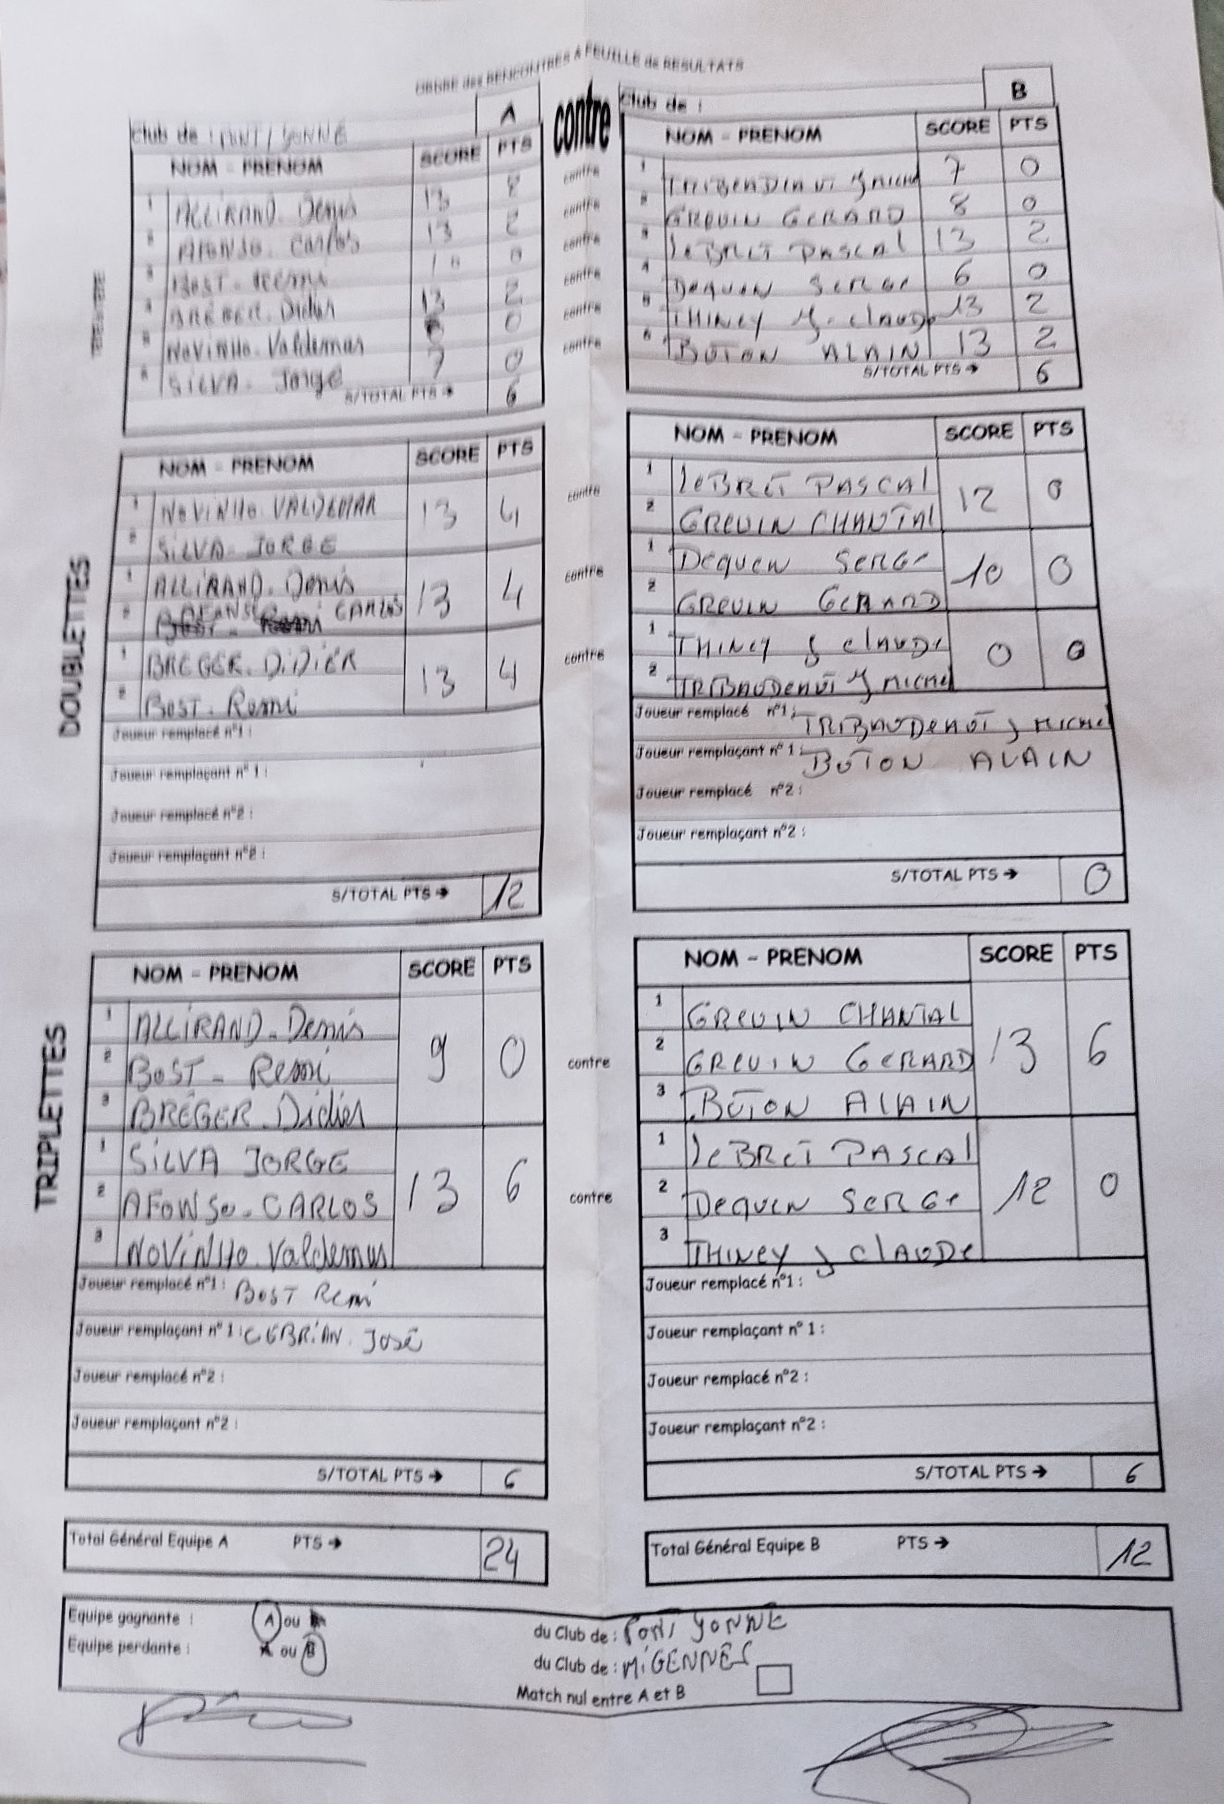 ORDRE des RENCONTRES & FEUILLE de RESULTATS
Club de : PONT / YONNE A
contre
Club de : B
NOM - PRENOM SCORE PTS
1 ALLIRAND. Denis 13 2
2 AFONSO. Carlos 13 2
3 BOST. Remi 0
4 BRÉGER. Didier 13 2
5 NOVINHO. Valdemar 0
6 SILVA. Jorge 7 0
S/TOTAL PTS → 6
contre
contre
contre
contre
contre
contre
NOM - PRENOM SCORE PTS
1 TRIBAUDENOT J Michel 7 0
2 GREUIN GERARD 8 0
3 LeBRET PASCAL 13 2
4 DEQUEN SERGE 6 0
5 THINEY J. CLAUDE 13 2
6 BUTON ALAIN 13 2
S/TOTAL PTS → 6
DOUBLETTES
NOM - PRENOM SCORE PTS
1 NOVINHO. VALDEMAR 13 4
2 SILVA. JORGE
1 ALLIRAND. Denis 13 4
2 AFONSO CARLOS
1 BREGER. DIDIER 13 4
2 BOST. Remi
Joueur remplacé n°1 :
Joueur remplaçant n° 1 :
Joueur remplacé n°2 :
Joueur remplaçant n°2 :
S/TOTAL PTS → 12
contre
contre
contre
NOM - PRENOM SCORE PTS
1 LeBRET PASCAL 12 0
2 GREUIN CHANTAL
1 DEQUEN SERGE 10 0
2 GREUIN GERARD
1 THINEY J CLAUDE 0 0
2 TRIBAUDENOT J MICHEL
Joueur remplacé n°1 : TRIBAUDENOT J MICHEL
Joueur remplaçant n° 1 : BUTON ALAIN
Joueur remplacé n°2 :
Joueur remplaçant n°2 :
S/TOTAL PTS → 0
TRIPLETTES
NOM - PRENOM SCORE PTS
1 ALLIRAND. Denis 9 0
2 BOST - Remi
3 BRÉGER. Didier
1 SILVA JORGE 13 6
2 AFONSO. CARLOS
3 NOVINHO. Valdemar
Joueur remplacé n°1 : BOST Remi
Joueur remplaçant n° 1 : CEBRIAN. José
Joueur remplacé n°2 :
Joueur remplaçant n°2 :
S/TOTAL PTS → 6
contre
contre
NOM - PRENOM SCORE PTS
1 GREUIN CHANTAL 13 6
2 GREUIN GERARD
3 BUTON ALAIN
1 LeBRET PASCAL 12 0
2 DEQUEN SERGE
3 THINEY J CLAUDE
Joueur remplacé n°1 :
Joueur remplaçant n° 1 :
Joueur remplacé n°2 :
Joueur remplaçant n°2 :
S/TOTAL PTS → 6
Total Général Equipe A PTS → 24
Total Général Equipe B PTS → 12
Equipe gagnante : A ou B du Club de : PONT YONNE
Equipe perdante : A ou B du Club de : MIGENNES
Match nul entre A et B